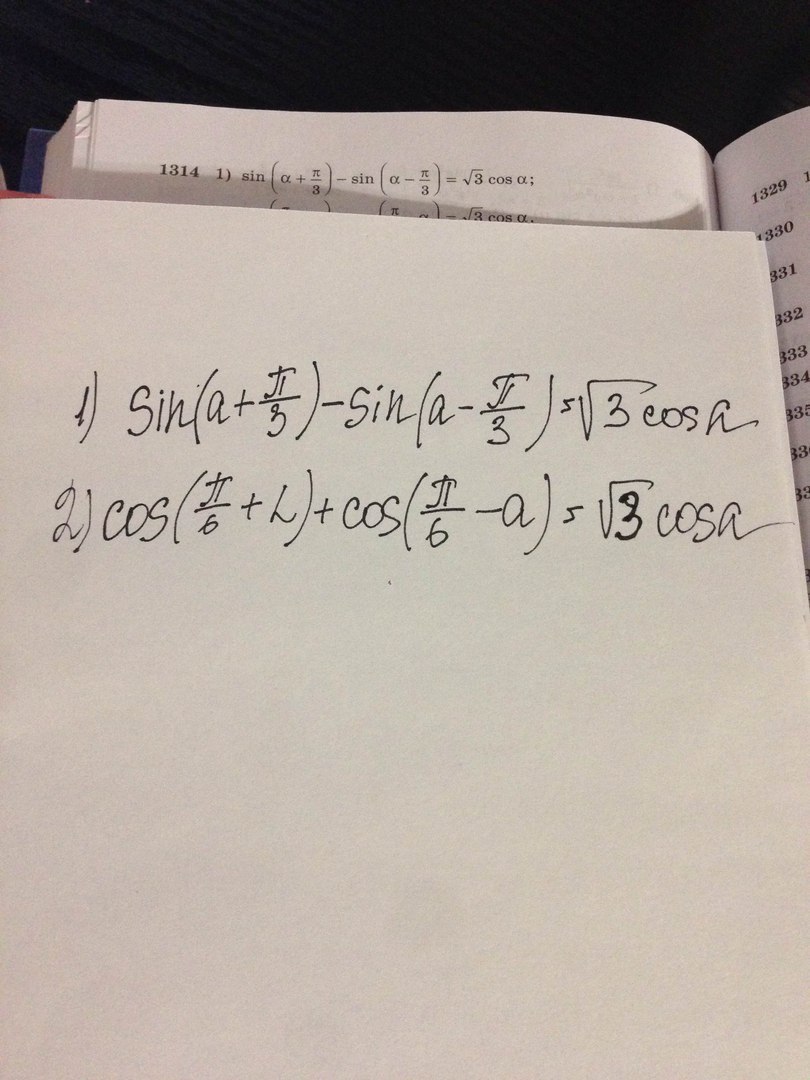 1314 1) sin (α + π/3) − sin (α − π/3) = √3 cos α;
= √3 cos α.
1329
1330
331
332
333
334
335
1) Sin(a+π/3)-Sin(a-π/3)=√3 cosa
2) cos(π/6+L)+cos(π/6-a)=√3 cosa